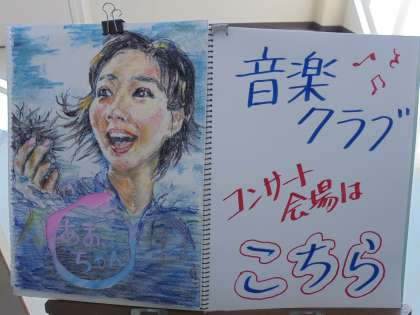 あま
ちゃん
音楽
クラブ
コンサート
会場は
こちら